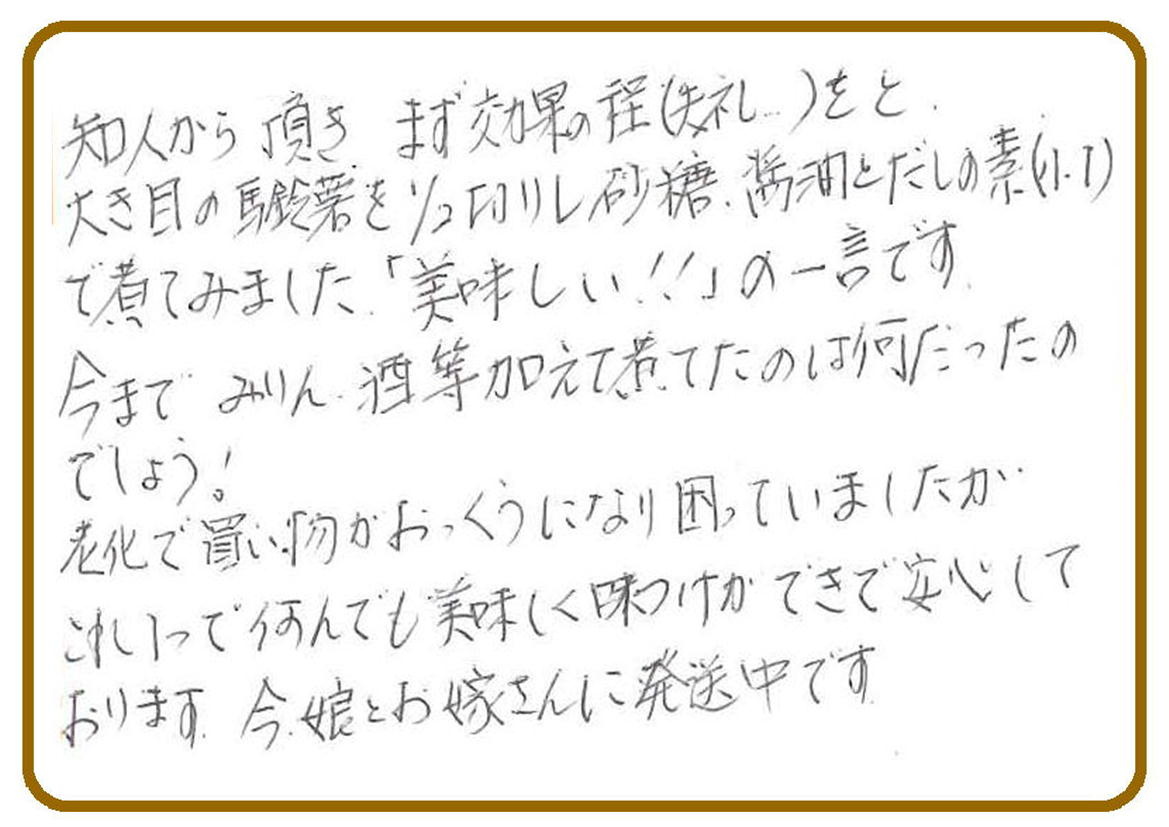 知人から頂き まず効果の程(失礼…)をと、
大き目の馬鈴薯を1/2切りし砂糖、醤油とだしの素(小1)
で煮てみました。「美味しい!!」の一言です。
今まで みりん、酒等加えて煮てたのは何だったの
でしょう!
老化で買い物がおっくうになり困っていましたが
これ1つで何んでも美味しく味つけができで安心して
おります。今、娘とお嫁さんに発送中です。